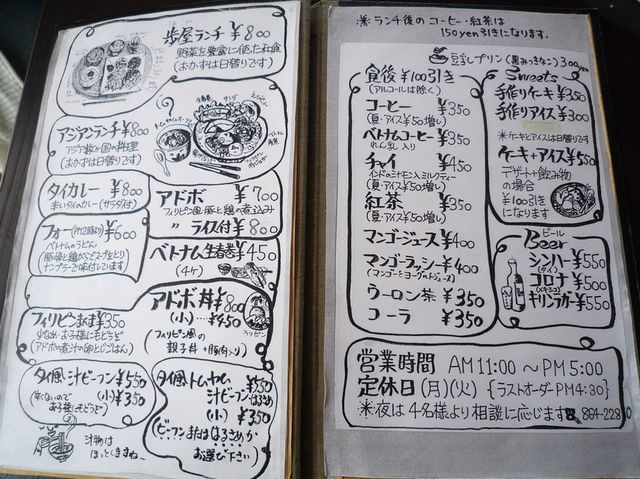 歩屋ランチ ¥800
野菜を豊富に使った和食
(おかずは日替りです)
アジアンランチ ¥800
アジア数ヶ国の料理
(おかずは日替りです)
サラダ
タイカレー ¥800
辛いタイのカレー(サラダ付)
フォー ¥600
ベトナムのうどん
アドボ ¥700
フィリピン風・豚と鶏の煮込み
〃 ライス付 ¥800
ベトナム生春巻 ¥450
(4ケ)
アドボ丼 ¥800
(小)…¥450
(フィリピン風の
親子丼+豚肉入り)
フィリピンおかま ¥350
アドボの煮汁の卵とじごはん
タイ風汁ビーフン ¥550
(小) ¥350
辛くないので
お子様にもどうぞ
汁物は
ほっとしますねー
タイ風トムヤム
汁ビーフン ¥550
(小) ¥350
(ビーフンまたははるさめか
お選び下さい)
※ランチ後のコーヒー・紅茶は
150yen引きになります。
豆乳プリン(黒みつきなこ) 300yen
食後¥100引き
(アルコールは除く)
コーヒー ¥350
(夏・アイス¥50増し)
ベトナムコーヒー ¥350
れん乳入り
チャイ ¥450
インドのシナモン入ミルクティー
(夏・アイス¥50増し)
紅茶 ¥350
(夏・アイス¥50増し)
マンゴージュース ¥400
マンゴーラッシー ¥400
(マンゴーとヨーグルトジュース)
ウーロン茶 ¥350
コーラ ¥350
Sweets
手作りケーキ ¥350
手作りアイス ¥300
※ケーキとアイスは日替りです
ケーキ+アイス ¥550
デザート+飲み物
の場合
¥100引き
になります
ビール
Beer
シンハー ¥550
(タイ)
コロナ ¥500
(メキシコ)
キリンラガー ¥550
営業時間 AM11:00～PM5:00
定休日(月)(火) {ラストオーダーPM4:30}
※夜は4名様より相談に応じます☎